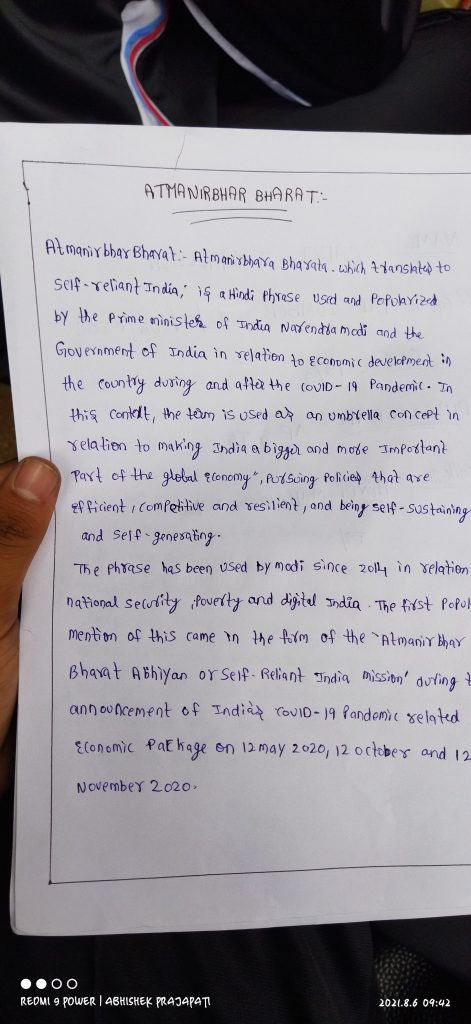 ATMANIRBHAR BHARAT:-
Atmanirbhar Bharat:- Atmanirbhara Bharata. which translates to
self-reliant India,' is a Hindi Phrase used and Popularized
by the Prime minister of India Narendra modi and the
Government of India in relation to Economic development in
the country during and after the COVID-19 Pandemic. In
this contaxt, the term is used as an umbrella concept in
relation to making India a bigger and more Important
Part of the global Economy", Pursuing Policies that are
Efficient, competitive and resilient, and being self-sustaining
and self-generating.
The Phrase has been used by modi since 2014 in relation
national security, Poverty and digital India. The first Popul
mention of this came in the form of the 'Atmanirbhar
Bharat Abhiyan or Self-Reliant India mission' during t
announcement of India's COVID-19 Pandemic related
Economic Package on 12 may 2020, 12 october and 12
November 2020.
REDMI 9 POWER | ABHISHEK PRAJAPATI
2021.8.6 09:42